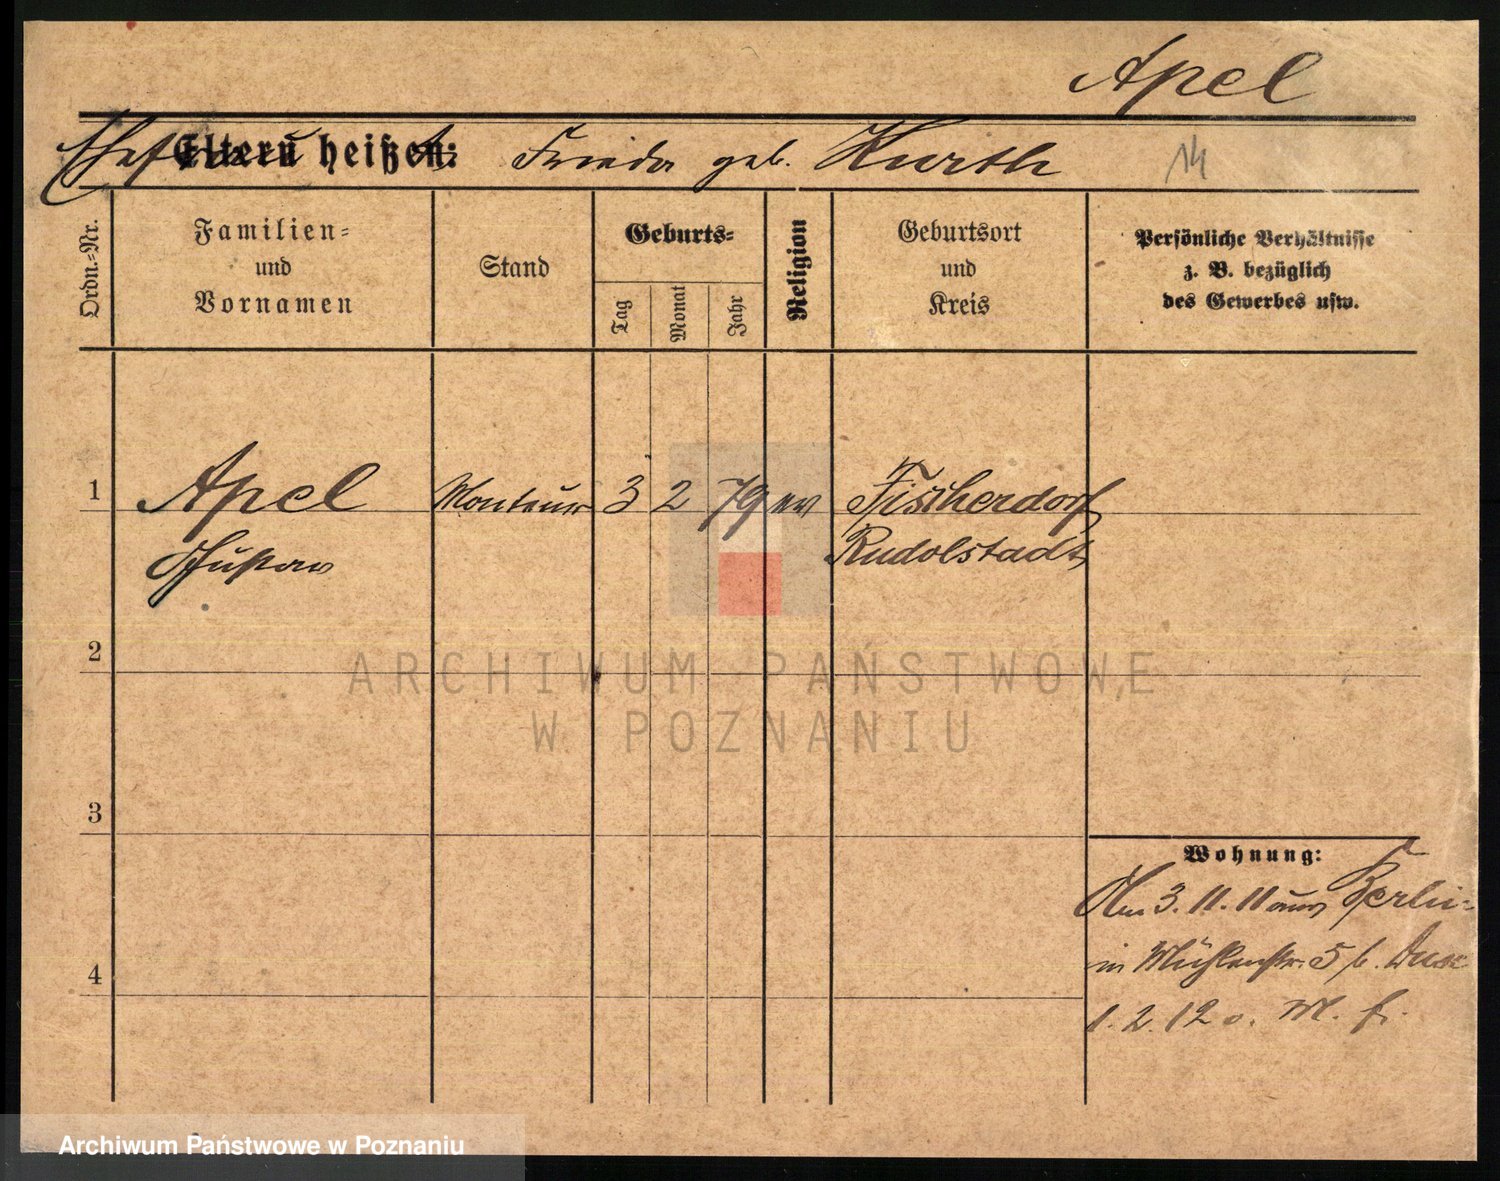 Apel
Ehefrau heißt: Frieda geb. Kurth
14
Ordn.-Nr.
Familien-
und
Vornamen
Stand
Geburts-
Tag
Monat
Jahr
Religion
Geburtsort
und
Kreis
Persönliche Verhältnisse
z. B. bezüglich
des Gewerbes usw.
1
Apel Monteur 3 2 79 ev Fischerdorf
Gustav Rudolstadt
2
ARCHIWUM PAŃSTWOWE
W POZNANIU
3
Wohnung:
Am 3. 11. 11 aus Berlin
in Mühlenstr. 5 b.
4
1. 2. 12
Archiwum Państwowe w Poznaniu